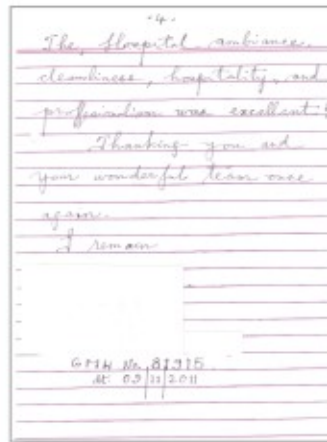 -4-
The, Hospital ambiance,
cleanliness, hospitality, and
professionalism was excellent!
Thanking you and
your wonderful team once
again.
I remain
GMH No. 81915
dt: 09/11/2011